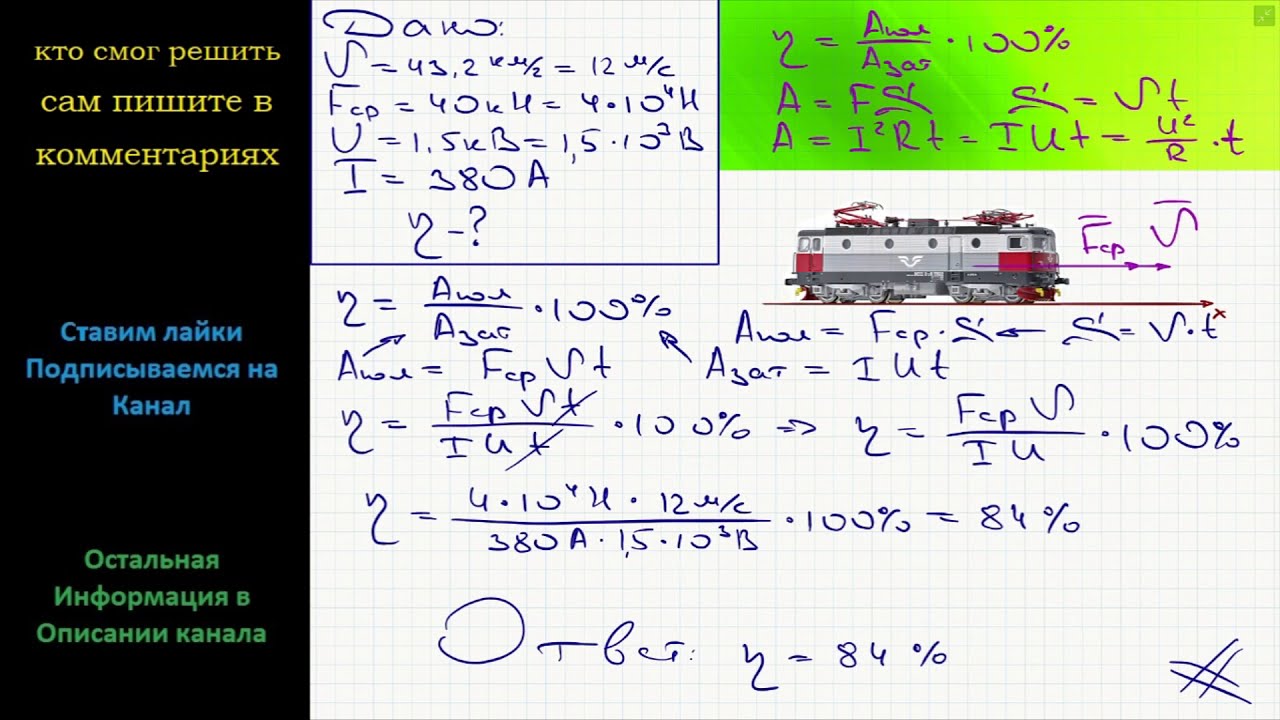 кто смог решить
сам пишите в
комментариях
Ставим лайки
Подписываемся на
Канал
Остальная
Информация в
Описании канала
Дано:
V = 43,2 км/ч = 12 м/с
Fср = 40кН = 4·10⁴Н
U = 1,5кВ = 1,5·10³В
I = 380А
η - ?
η = Апол/Азат · 100%
A = FS S = Vt
A = I²Rt = IUt = U²/R · t
Fср V
x
η = Апол/Азат · 100%
Апол = Fср · S ← S = V·t
Апол = Fср V t
Азат = I U t
η = Fср V t / I U t · 100% => η = Fср V / I U · 100%
η = 4·10⁴Н · 12м/с / 380А · 1,5·10³В · 100% = 84%
Ответ: η = 84%